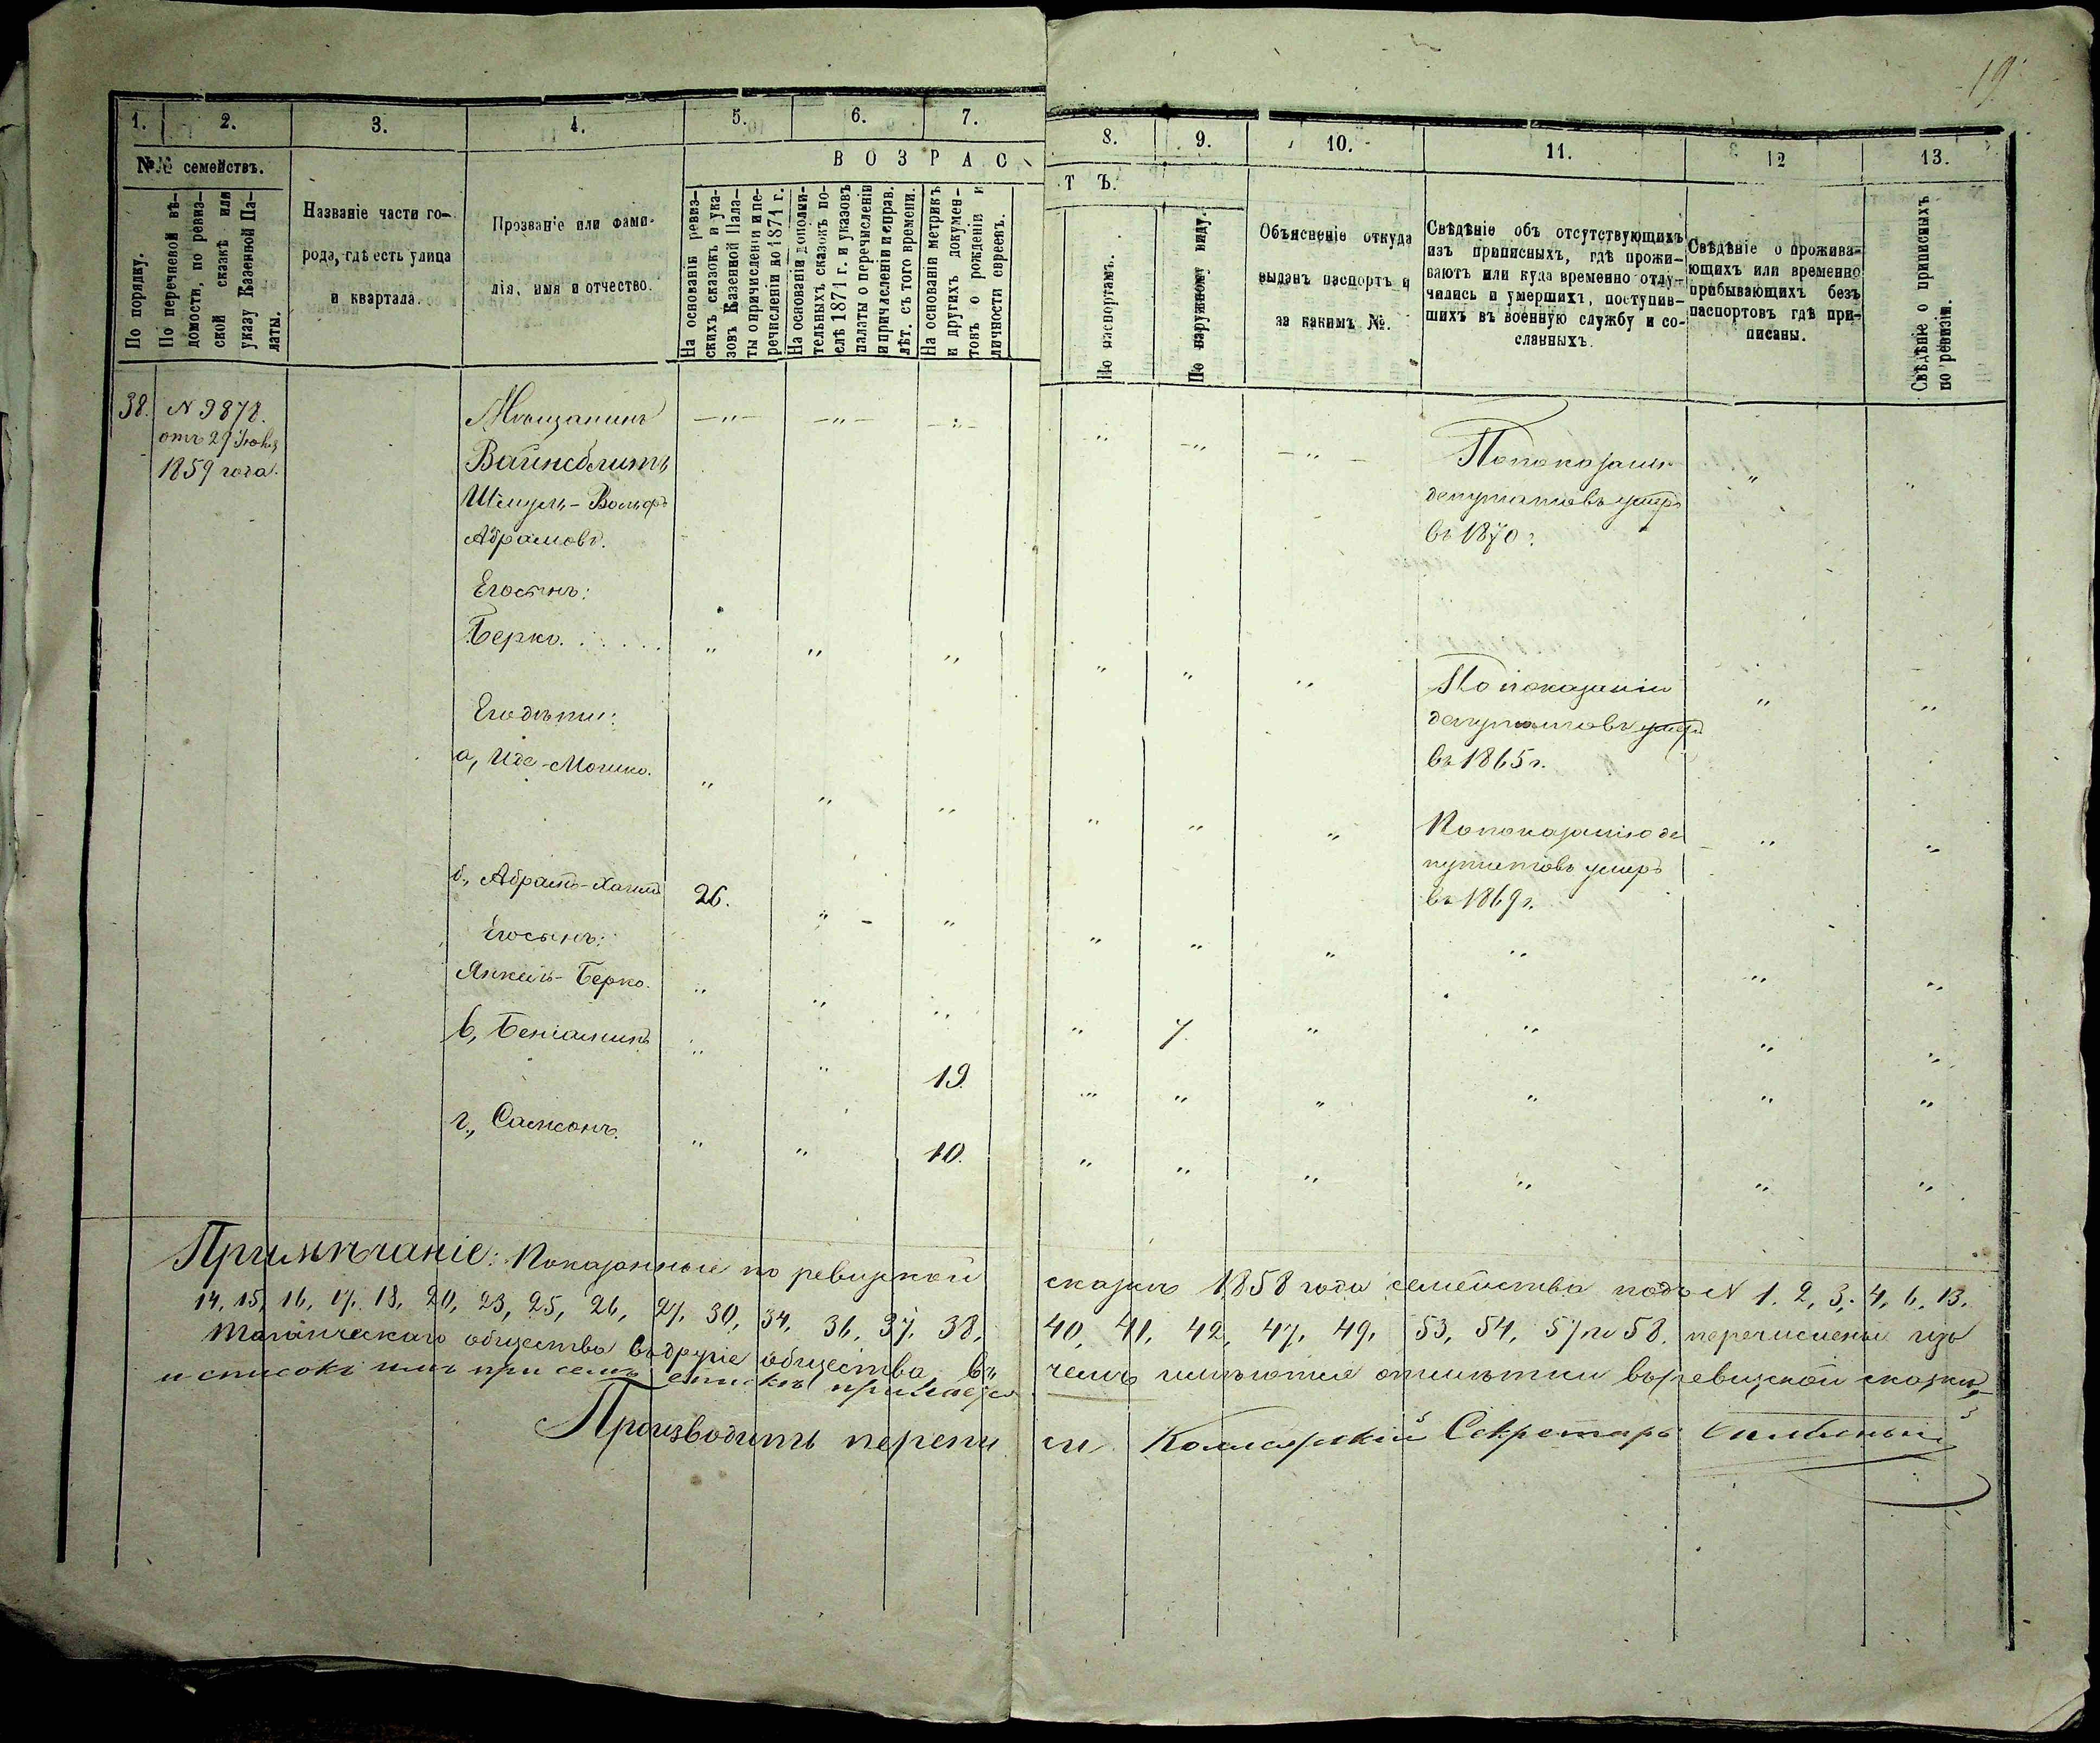 19
1. 2. 3. 4. 5. 6. 7. 8. 9. 10. 11. 12 13.
№№ семействъ.
ВОЗРАСТЪ.
По порядку.
По перечневой вѣ-
домости, по ревиз-
ской сказкѣ или
указу Казенной Па-
латы.
Названіе части го-
рода, гдѣ есть улица
и квартала.
Прозваніе или фами-
лія, имя и отчество.
На основаніи ревиз-
скихъ сказокъ и ука-
зовъ Казенной Пала-
ты о причисленіи и пе-
речисленіи до 1871 г.
На основаніи дополни-
тельныхъ сказокъ по-
слѣ 1871 г. и указовъ
палаты о перечисленіи
и причисленіи и справ.
лѣт. съ того времени.
На основаніи метрикъ
и другихъ докумен-
товъ о рожденіи и
личности евреевъ.
По паспортамъ.
По наружному виду.
Объясненіе откуда
выданъ паспортъ и
за какимъ №.
Свѣдѣніе объ отсутствующихъ
изъ приписныхъ, гдѣ прожи-
ваютъ или куда временно отлу-
чились и умершихъ, поступив-
шихъ въ военную службу и со-
сланныхъ.
Свѣдѣніе о прожива-
ющихъ или временно
пребывающихъ безъ
паспортовъ гдѣ при-
писаны.
Свѣдѣніе о приписныхъ
по ревизіи.
38. N 9878. Мѣщанинъ —„— —„— —„— „ —„ —„— По показанію „ „
отъ 29 Іюля Вайнсблитъ депутатовъ умеръ
1859 года. Шмуль-Вольфъ въ 1870 г.
Абрамовъ.
Его сынъ:
Берко. . . . . . „ „ „ „ „ „ По показанію „ „
депутатовъ умеръ
въ 1865 г.
Его дѣти:
а, Иде-Мошко. „ „ „ „ „ „ По показанію де „ „
путатовъ умеръ
въ 1869 г.
б, Абрамъ-Хаимъ 26. „ - „ „ „ „ „ „ „
Его сынъ:
Янкель-Берко. „ „ „ „ 7. „ „ „ „
в, Беніаминъ „ „ 19. „ „ „ „ „ „
г, Самсонъ. „ „ 10. „ „ „ „ „ „
Примѣчаніе: Показанные по ревизской сказкѣ 1858 года семейства подъ N 1. 2, 3, 4, 6, 13.
14, 15, 16, 17. 18, 20, 23, 25, 26, 27, 30, 34, 36, 37, 38, 40, 41, 42, 47, 49, 53, 54, 57 и 58. перечислены изъ
общества въ другіе общества, въ чемъ имѣются отмѣтки въ ревизской сказкѣ
и списокъ имъ при семъ
Производитъ перепи си Секретарь